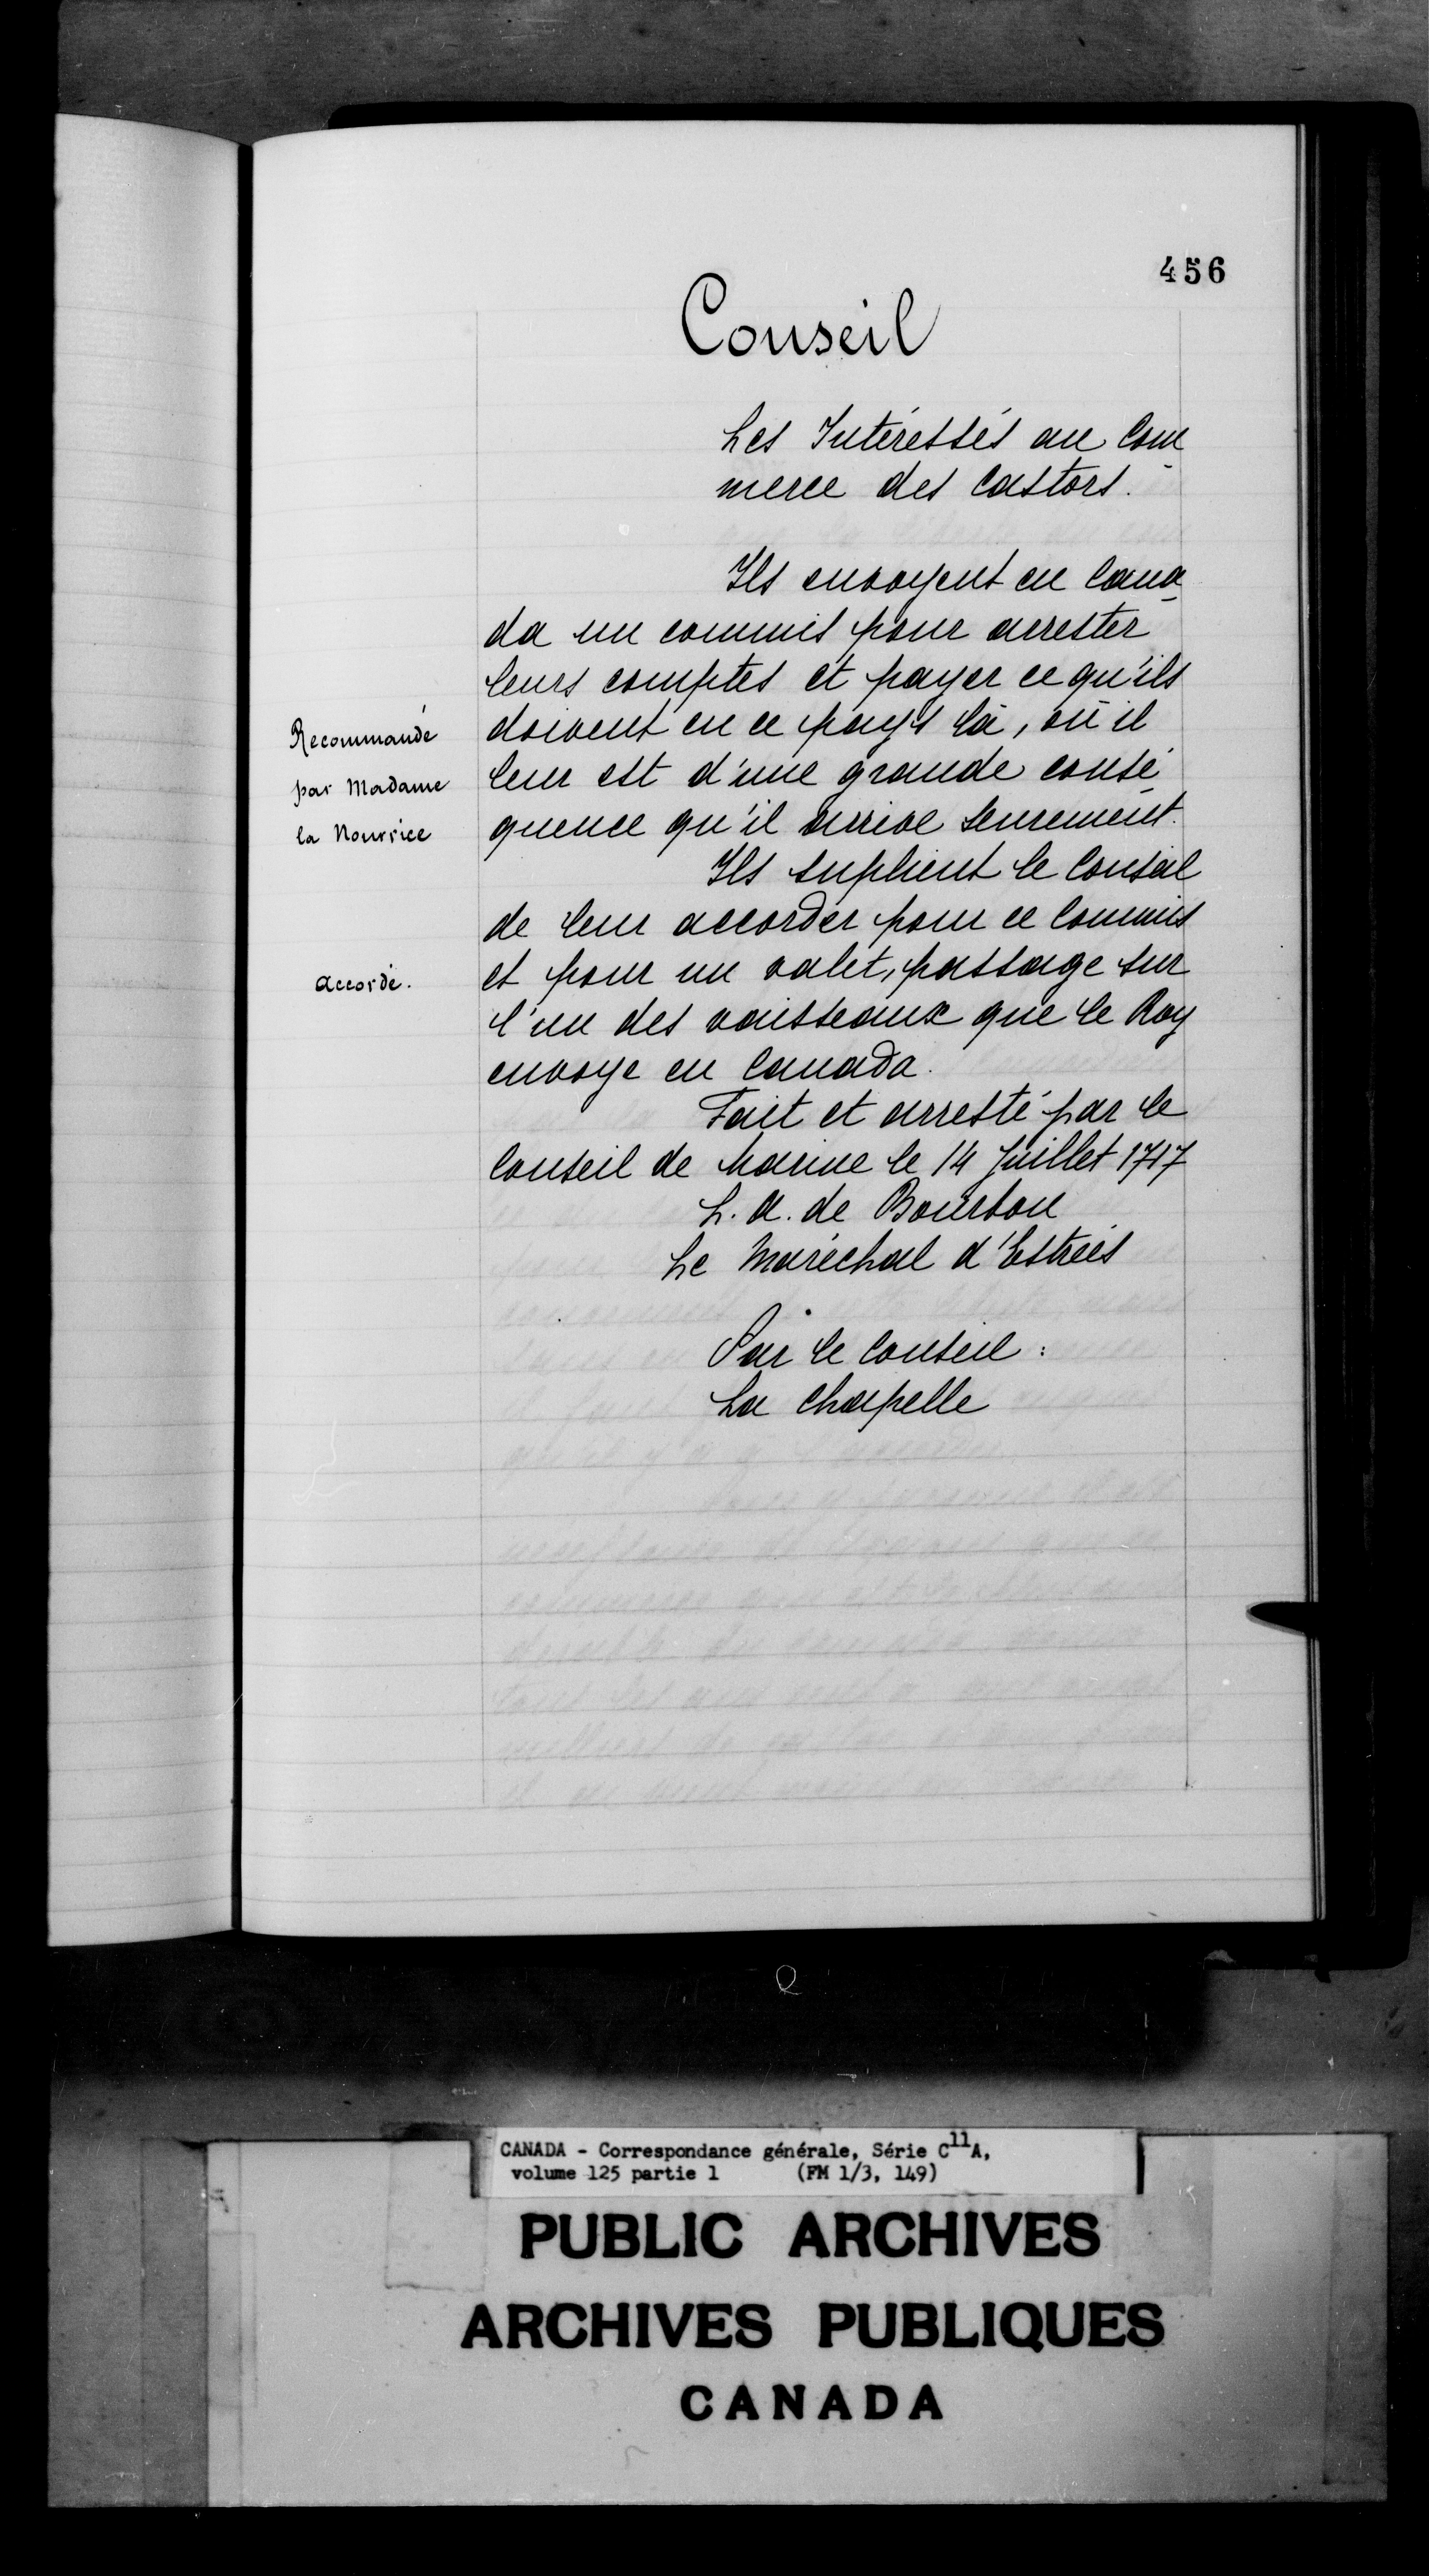 456
Conseil
Les Intéressés au Com
merce des Castors.
Ils envoyent en Cana
da un commis pour arrester
leurs comptes et payer ce qu'ils
doivent en ce pays là, où il
leur est d'une grande consé
quence qu'il arrive seurement.
Recommandé
par Madame
la Nourrice
Ils suplient le Conseil
de leur accorder pour ce Commis
et pour un valet, passage sur
l'un des vaisseaux que le Roy
envoye en Canada.
accordé.
Fait et arresté par le
Conseil de Marine le 14 Juillet 1717
L. A. de Bourbon
Le Maréchal d'Estrées
Par le Conseil :
La Chapelle
CANADA - Correspondance générale, Série C11A,
volume 125 partie 1 (FM 1/3, 149)
PUBLIC ARCHIVES
ARCHIVES PUBLIQUES
CANADA